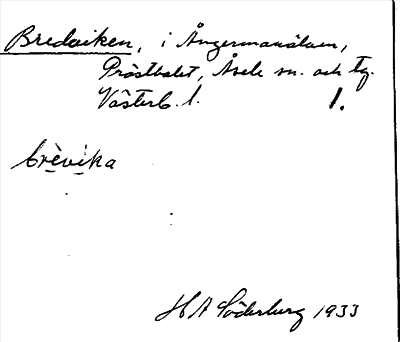 Bredviken, i Ångermanälven,
Prästbolet, Åsele sn. och tg.
Västerb. l. 1.
brèvika
H A Söderberg 1933